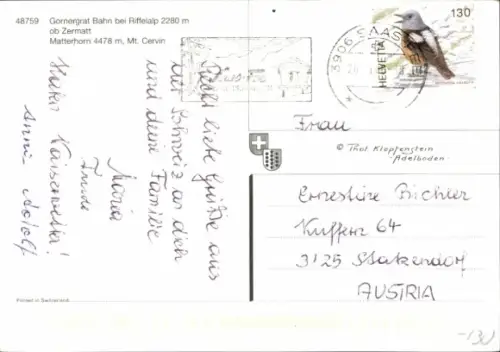 48759 Gornergrat Bahn bei Riffelalp 2280 m
ob Zermatt
Matterhorn 4478 m, Mt. Cervin
130
HELVETIA
3906 SAAS
Recht liebe Grüße aus
der Schweiz an dich
und deine Familie
Maria
Trude
Heute Kaiserwetter!
Anni Adolf
Frau
© Phot Klopfenstein
Adelboden
Ernestine Bichler
Kuffern 64
3125 Statzendorf
AUSTRIA
Printed in Switzerland
-130